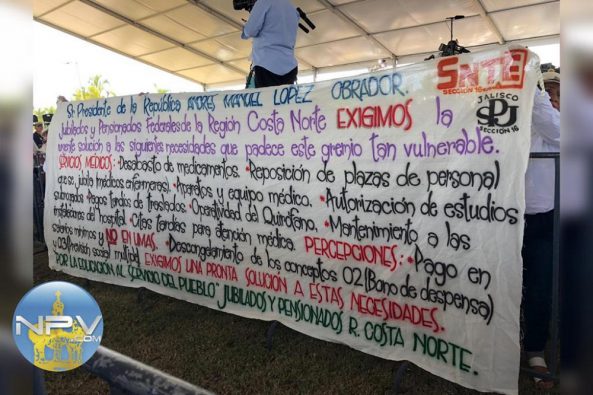 Sr. Presidente de la República ANDRES MANUEL LOPEZ OBRADOR.
Jubilados y Pensionados Federales de la Región Costa Norte EXIGIMOS la
solución a las siguientes necesidades que padece este gremio tan vulnerable.
SERVICIOS MEDICOS: • Desabasto de medicamentos. • Reposición de plazas de personal
que se jubila (medicos, enfermeras). • Aparatos y equipo médico. • Autorización de estudios
subrogados • Pagos tardios de traslados. • Operatividad del Quirofano. • Mantenimiento a las
instalaciones del hospital. • Citas tardías para atención médica. PERCEPCIONES: • Pago en
salarios minimos y NO EN UMAS. • Descongelamiento de los conceptos 02 (Bono de despensa)
y 03 (Prevision social multiple). EXIGIMOS UNA PRONTA SOLUCIÓN A ESTAS NECESIDADES.
"POR LA EDUCACIÓN AL SERVICIO DEL PUEBLO" JUBILADOS Y PENSIONADOS R. COSTA NORTE.
SNTE
SECCIÓN 16
JALISCO
SECCION 16
NPV
.COM